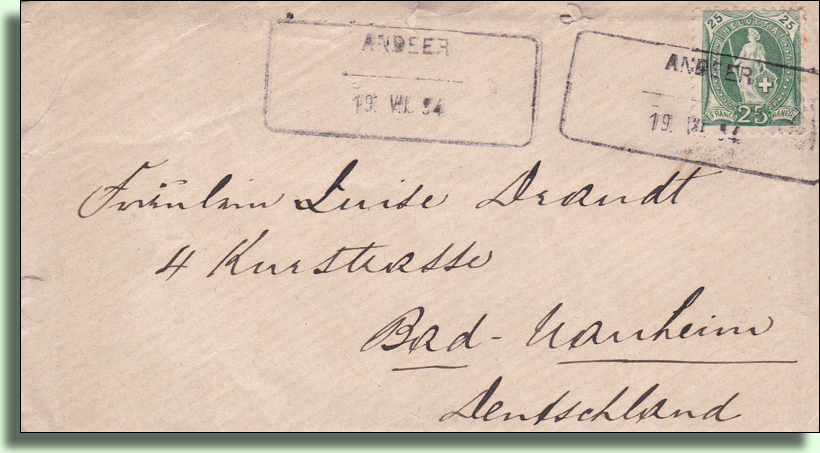 ANDEER
19. VII. 94
ANDEER
19. VII. 94
25 HELVETIA 25
25
FRANCO FRANCO
Fräulein Luise Drandt
4 Kurstrasse
Bad-Nauheim
Deutschland